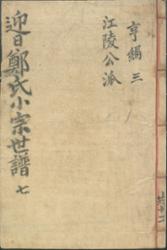 迎日鄭氏小宗世譜 七
亨絅 三
江陵公派